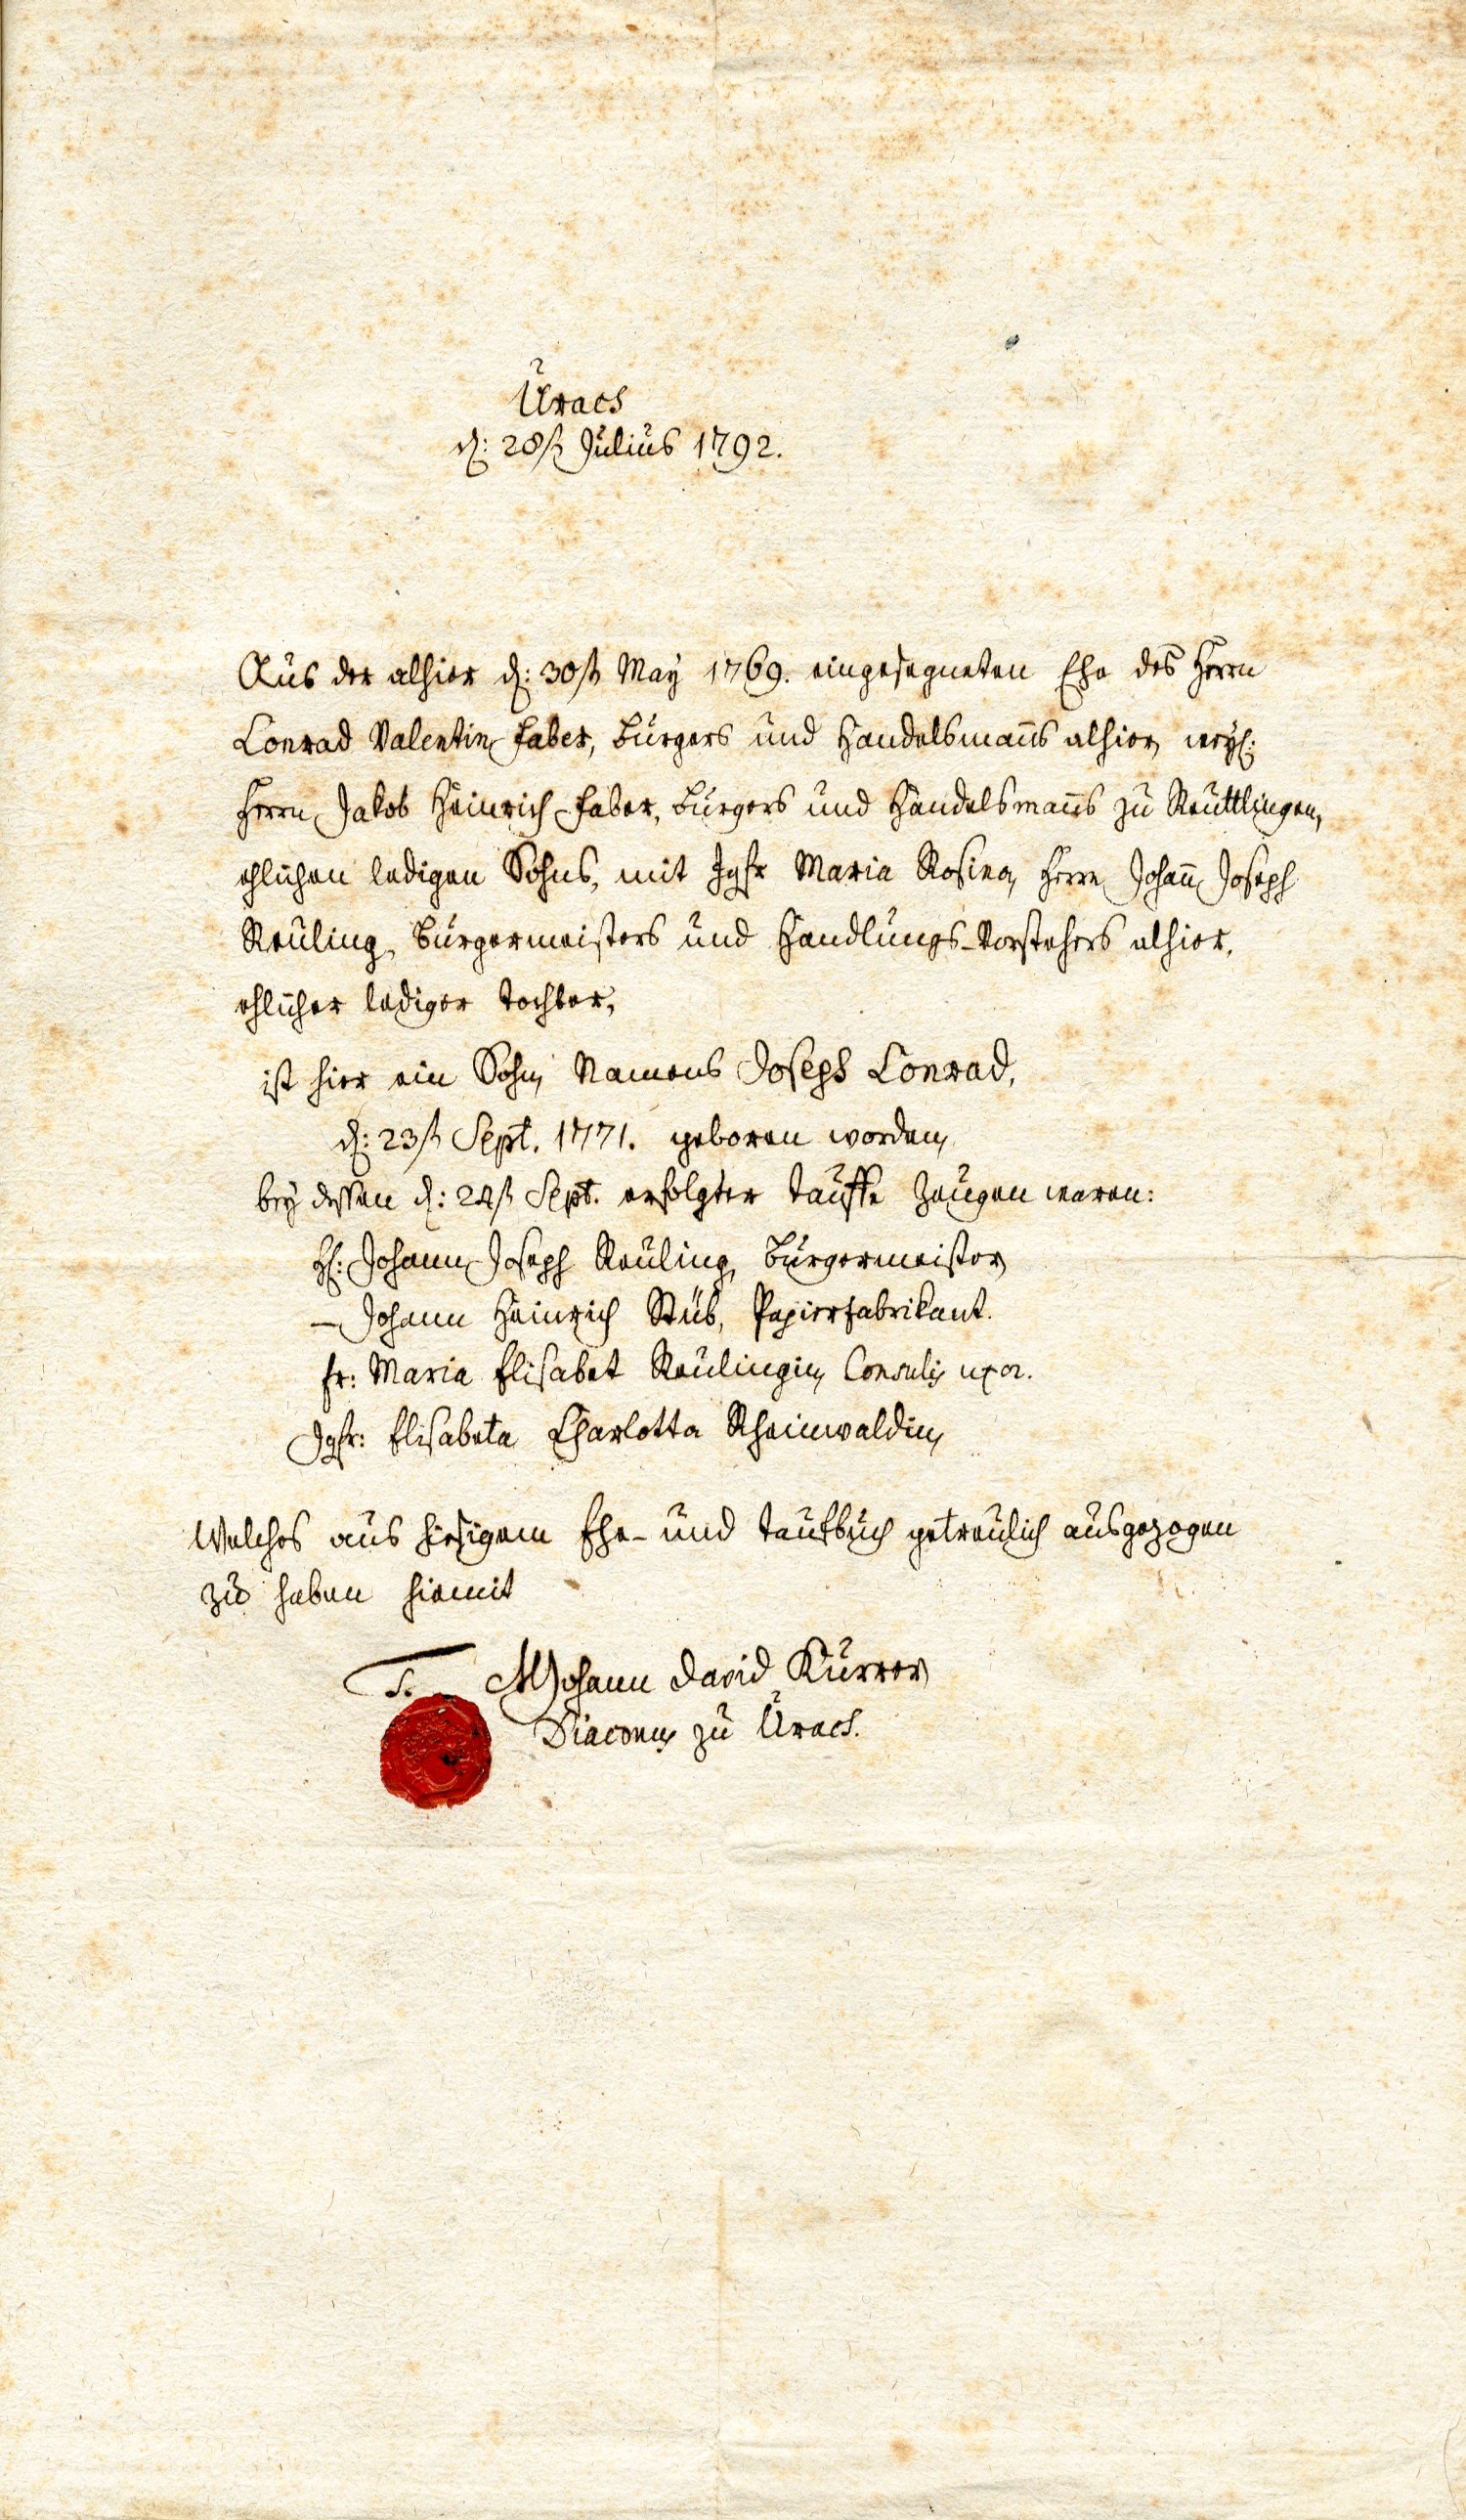 Urach
d: 28st Julius 1792.
Aus der alhier d: 30st May 1769. eingesegneten Ehe des Herrn
Conrad Valentin Faber, Burgers und Handelsmans alhier, weyl:
Herrn Jakob Heinrich Faber, Burgers und Handelsmans zu Reuttlingen,
ehlichen ledigen Sohns, mit Jgfr Maria Rosina, Herrn Johan Joseph
Reuling, Burgermeisters und Handlungs-Vorstehers alhier,
ehlicher lediger Tochter,
ist hier ein Sohn, Namens Joseph Conrad,
d: 23st Sept. 1771. geboren worden,
bey dessen d: 24st Sept. erfolgter Tauffe Zeugen waren:
H: Johann Joseph Reuling, Burgermeister
— Johann Heinrich Stüb, Papierfabrikant.
Fr: Maria Elisabet Reulingin, Consulis uxor.
Jgfr: Elisabeta Charlotta Rheinwaldin,
Welches aus hiesigem Ehe- und Taufbuch getreulich ausgezogen
zu haben hiemit
T. S. M Johann David Kurrer
Diaconus zu Urach.